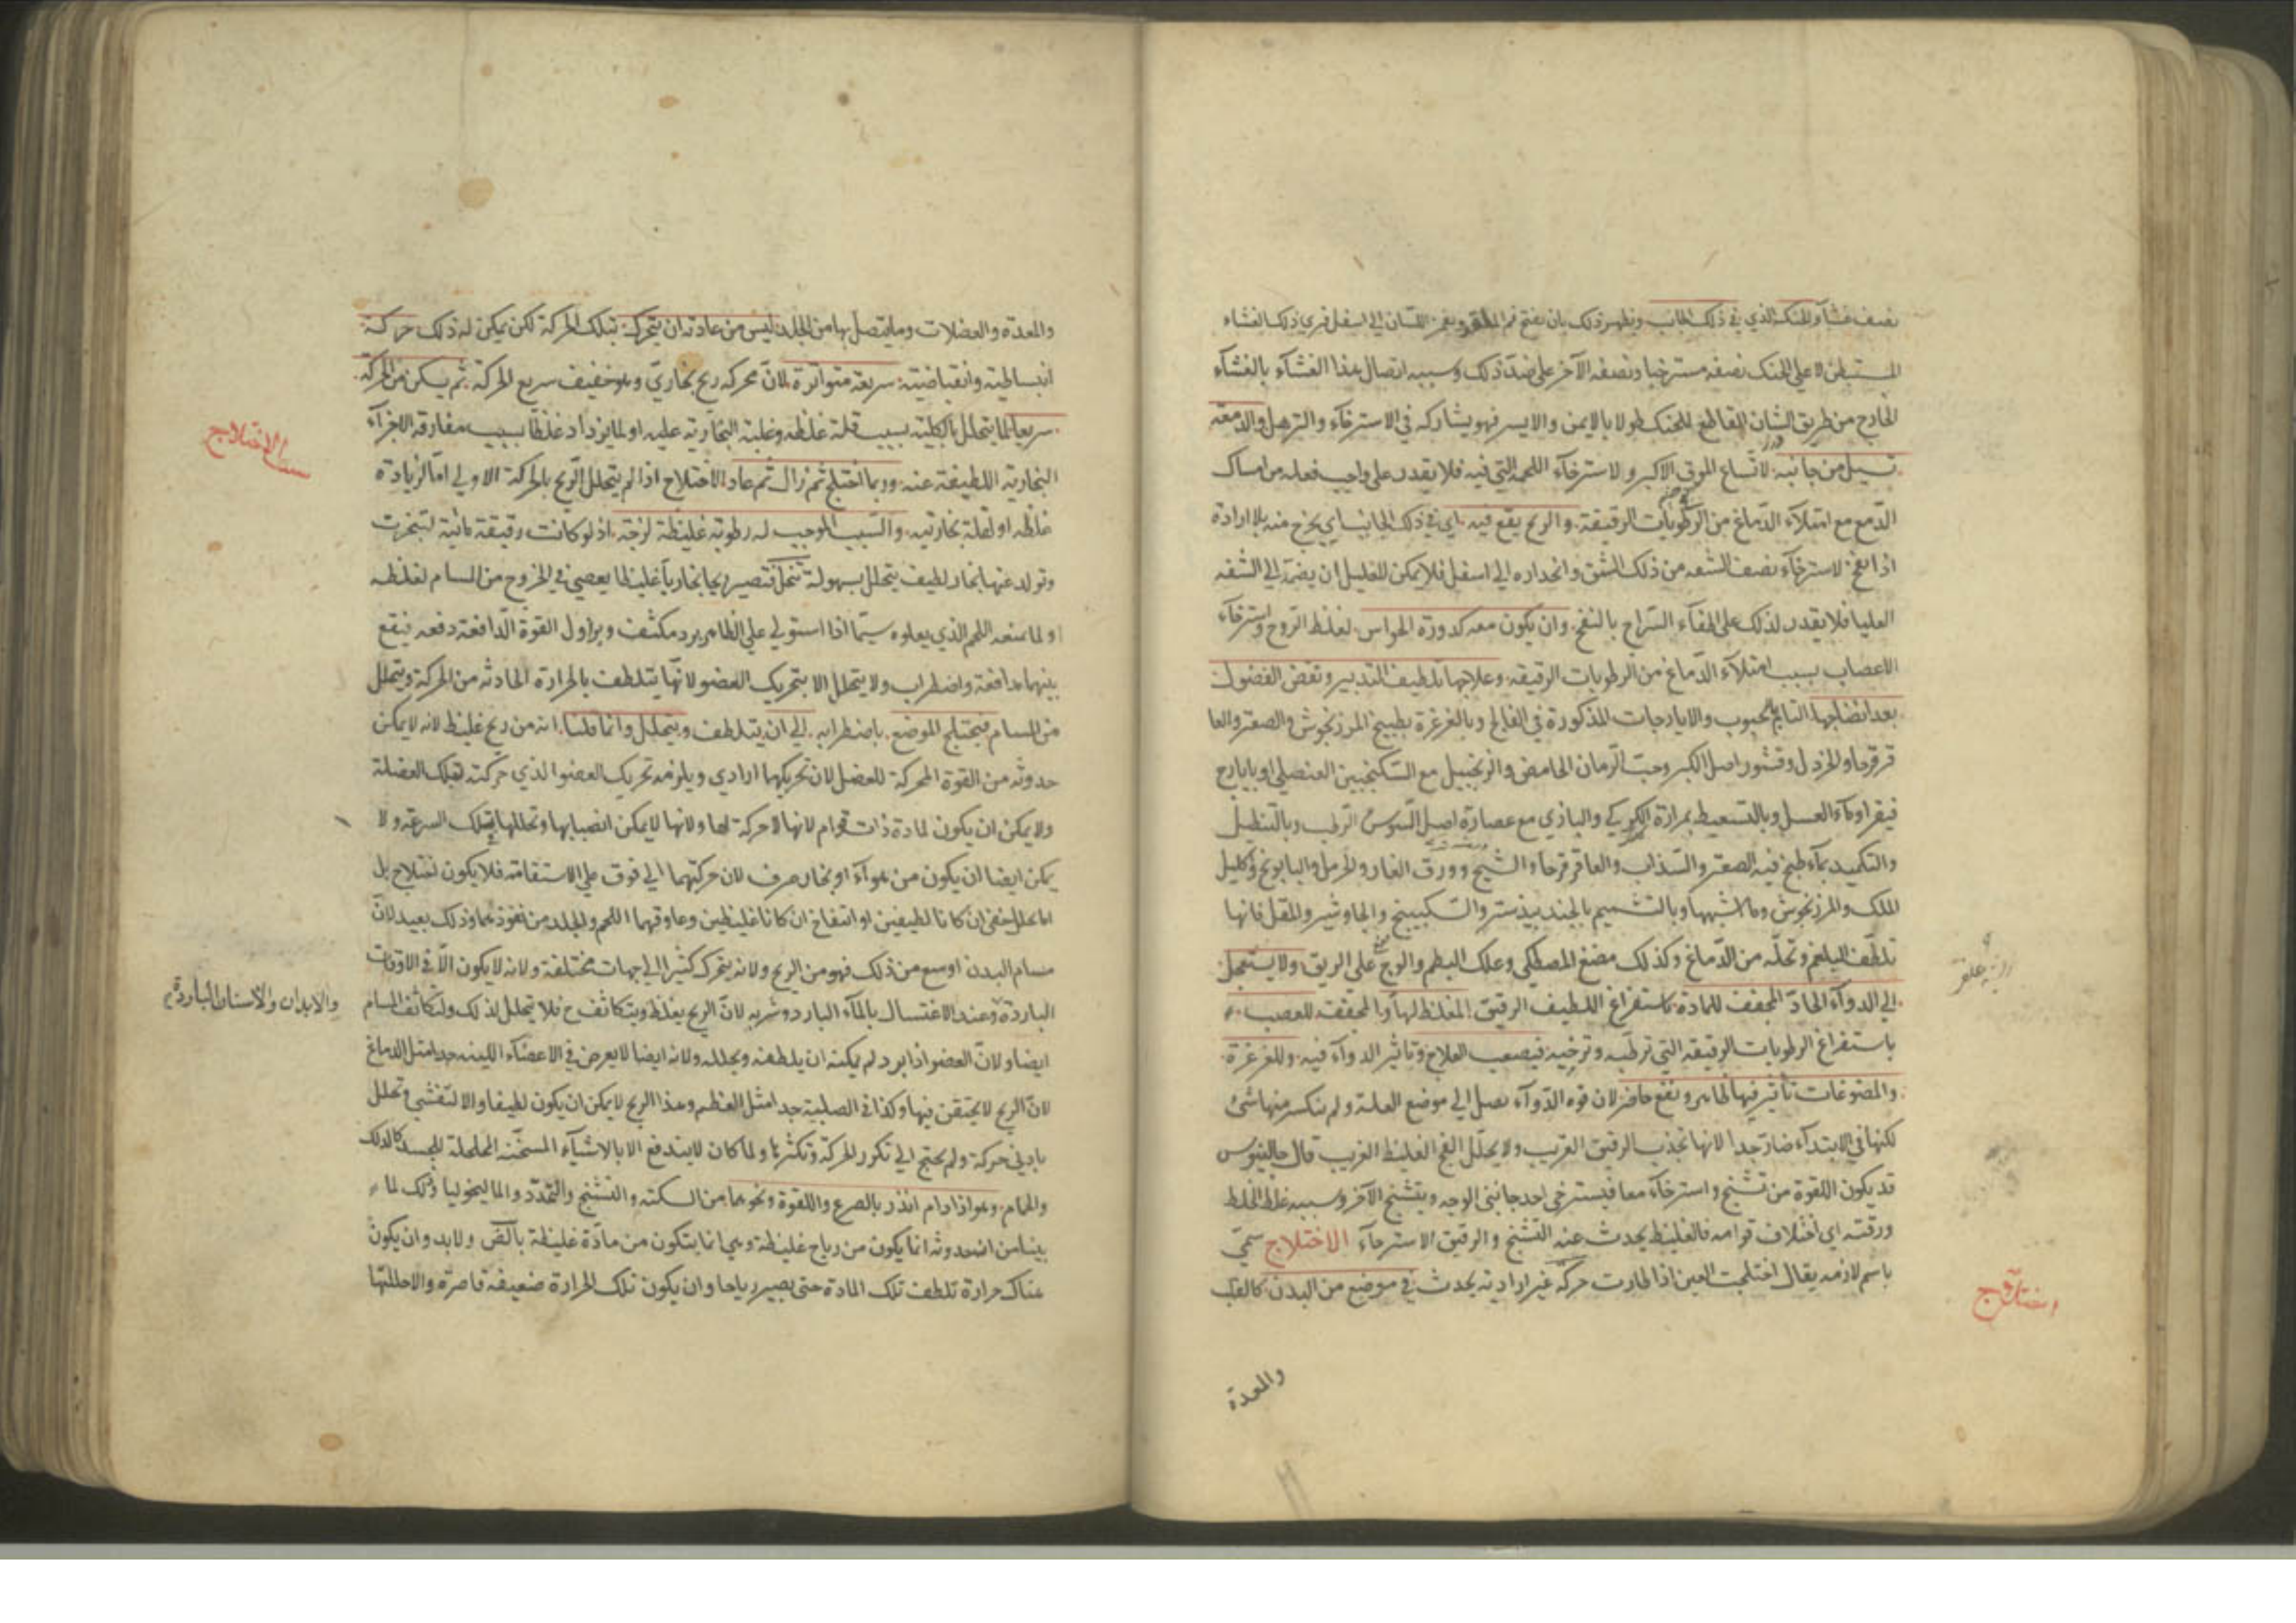 نصف غشاء الحنك الذي في ذلك الجانب ويظهر ذلك بان يفتح فم الملقو ويغمز اللسان الي اسفل فيري ذلك الغشاء
المستبطن لاعلي الحنك نصفه مسترخيا ونصفه الآخر علي ضد ذلك وسببه اتصال هذا الغشاء بالغشاء
الخارج من طريق الشان القاطع للحنك طولا بالايمن والايسر فهو يشاركه في الاسترخاء والترهل والدمعة
تسيل من جانبه لاتساع الموق الاكبر ولاسترخاء اللحمة التي فيه فلا يقدر علي واجب فعله من امساك
الدمع مع امتلاء الدماغ من الرطوبات الرقيقة والريح يقع فيه اي في ذلك الجانب اي يخرج منه بلا ارادة
اذا نفخ لاسترخاء نصف الشفه من ذلك الشق وانحداره الي اسفل فلا يمكن للعليل ان يضمه الي الشفه
العليا فلا يقدر لذلك علي اطفاء السراج بالنفخ وان يكون معه كدورة الحواس لغلظ الروح واسترخاء
الاعصاب بسبب امتلاء الدماغ من الرطوبات الرقيقة وعلاجها تلطيف التدبير ونفض الفضول
بعد انضاجها التام بالحبوب والايارجات المذكورة في الفالج وبالغرغرة بطبيخ المرزنجوش والصعتر والعا
قرقرحا والخردل وقشور اصل الكبر وحب الرمان الحامض والزنجبيل مع السكنجبين العنصلي او بايارج
فيقرا وماء العسل وبالتسعيط بمرارة الكركي والبازي مع عصارة اصل السوس الرطب وبالتنطيل
والتكميد بماء طبخ فيه الصعتر والسذاب والعاقر قرحا والشيح وورق الغار والحرمل والبابونج واكليل
الملك والمرزنجوش وما اشبهها وبالتشميم بالجندبيدستر والسكبينج والجاوشير والمقل فانها
تلطف البلغم وتحلله من الدماغ وكذلك مضغ المصطكي وعلك البطم والوج علي الريق ولا يستعجل
الي الدواء الحاد المجفف للمادة باستفراغ اللطيف الرقيق المغلظ لها والمجففة للعصب
باستفراغ الرطوبات الرقيقة التي ترطبه وترخيه فيصعب العلاج وتاثير الدواء فيه وللغرغرة
والمضوغات تأثير فيها ظاهر ونفع حاضر لان قوه الدواء تصل الي موضع العلة ولم ينكسر منها شئ
لكنها في الابتداء ضار جدا لانها تجذب الرقيق القريب ولا يحلل الفج الغليظ الغريب قال جالينوس
قد يكون اللقوة من تشنج واسترخاء معا فيسترخي احد جانبي الوجه ويتشنج الآخر وسببه غلظ الخلط
ورقته اي اختلاف قوامه فالغليظ يحدث عنه التشنج والرقيق الاسترخاء الاختلاج سمي
باسم لازمه يقال اختلجت العين اذا طارت حركة غير ارادية يحدث في موضع من البدن كالقلب
اختلاج
والمعدة
والمعدة والعضلات وما يتصل بها من الجلد ليس من عادته ان يتحرك بتلك الحركة لكن يمكن له ذلك حركة
انبساطية وانقباضية سريعة متواترة لان محركه ريح بخاري وهو خفيف سريع الحركة ثم يسكن من الحركة
سريعا لما يتحلل بالكلية بسبب قلة غلظه وغلبة البخارية عليه او لما يزداد غلظا بسبب مفارقة الاجزاء
البخارية اللطيفة عنه وربما اختلج ثم زال ثم عاد الاختلاج اذا لم يتحلل الريح بالحركة الاولي اما لزيادة
غلظه او لقلة بخاريته والسبب الموجب له رطوبة غليظة لزجة اذ لو كانت رقيقة مائية لتبخرت
وتولد عنها بخار لطيف يتحلل بسهولة تتحلل فتصير ريحا بخاريا غليظا يعصي في الخروج من المسام لغلظه
او لما يمنعه اللحم الذي يعلوه سيما اذا استولي علي الظاهر برد مكثف ويزاول القوة الدافعة دفعه فيقع
بينهما مدافعة واضطراب ولا يتحلل الا بتحريك العضو لانها يتلطف بالحرارة الحادثة من الحركة ويتحلل
من المسام فيختلج الموضع باضطرابه الي ان يتلطف ويتحلل وانما قلنا انه من ريح غليظ لانه لا يمكن
حدوثه من القوة المحركة للعضل لان تحريكها ارادي ويلزمه تحريك العضو الذي حركته لتلك العضلة
ولا يمكن ان يكون لمادة ذات قوام لانها لا حركة لها ولانها لا يمكن انصبابها وتحللها بتلك السرعة ولا
يمكن ايضا ان يكون من هواء او بخار صرف لان حركتهما الي فوق علي الاستقامة فلا يكون اختلاج بل
اما تحلل خفي ان كانا لطيفين او انتفاخ ان كانا غليظين وعاوقهما اللحم والجلد من نفوذهما وذلك بعيد لان
مسام البدن اوسع من ذلك فهو من الريح ولانه يتحرك كثيرا الي جهات مختلفة ولانه لا يكون الا في الاوقات
الباردة وعند الاغتسال بالماء البارد وشربه لان الريح يغلظ ويتكاثف ح فلا يتحلل لذلك ولتكاثف المسام
ايضا ولان العضو اذا برد لم يمكنه ان يلطفه ويحلله ولانه ايضا لا يعرض في الاعضاء اللينه جدا مثل الدماغ
لان الريح لا يحتقن فيها وكذا في الصلبة جدا مثل العظم وهذا الريح لا يمكن ان يكون لطيفا والا لتفشي وتحلل
بادني حركة ولم يحتج الي تكرر الحركة وتكثرها ولما كان لا يندفع الا بالاشياء المسخنة المحللة للجسد كالدلك
والحمام وهو اذا دام انذر بالصرع واللقوة ونحوهما من السكتة والتشنج والتمدد والماليخوليا وذلك لما
بينا من ان حدوثه انما يكون من رياح غليظة وهي انما يتكون من مادة غليظة بالض ولا بد وان يكون
هناك حرارة تلطف تلك المادة حتي يصير رياحا وان يكون تلك الحرارة ضعيفة قاصرة والا حللتها
الاختلاج
والابدان والاسنان الباردة